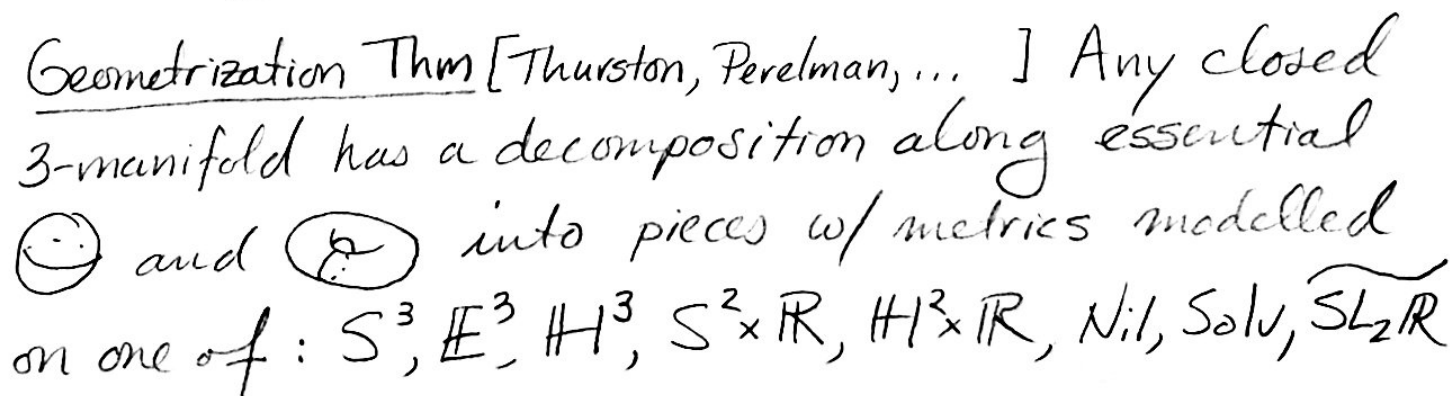 Geometrization Thm [Thurston, Perelman, ... ] Any closed
3-manifold has a decomposition along essential
and into pieces w/ metrics modelled
on one of: S³, 𝔼³, ℍ³, S²×ℝ, ℍ²×ℝ, Nil, Solv, S͠L₂ℝ